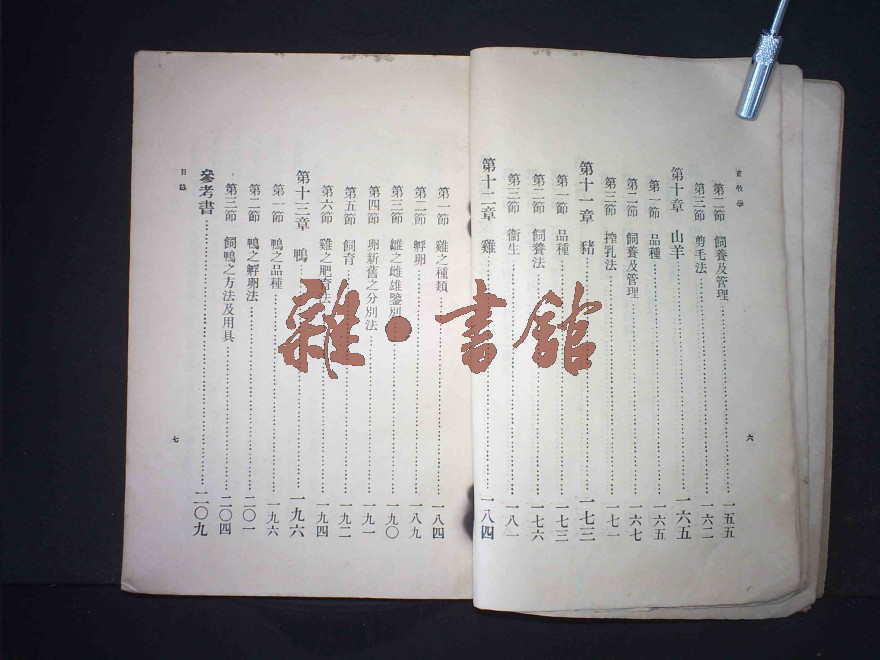 畜牧學
第二節 飼養及管理 一五五
第三節 剪毛法 一六二
第十章 山羊 一六五
第一節 品種 一六五
第二節 飼養及管理 一六七
第三節 搾乳法 一七一
第十一章 豬 一七三
第一節 品種 一七三
第二節 飼養法 一七六
第三節 衞生 一八一
第十二章 雞 一八四
六
第一節 雞之種類 一八四
第二節 孵卵 一八九
第三節 雛之雌雄鑒別 一九〇
第四節 卵新舊之分別法 一九一
第五節 飼育 一九二
第六節 雞之肥育法 一九四
第十三章 鴨 一九六
第一節 鴨之品種 一九六
第二節 鴨之孵卵法 二〇一
第三節 飼鴨之方法及用具 二〇四
參考書 二〇九
目錄
七
雜·書館